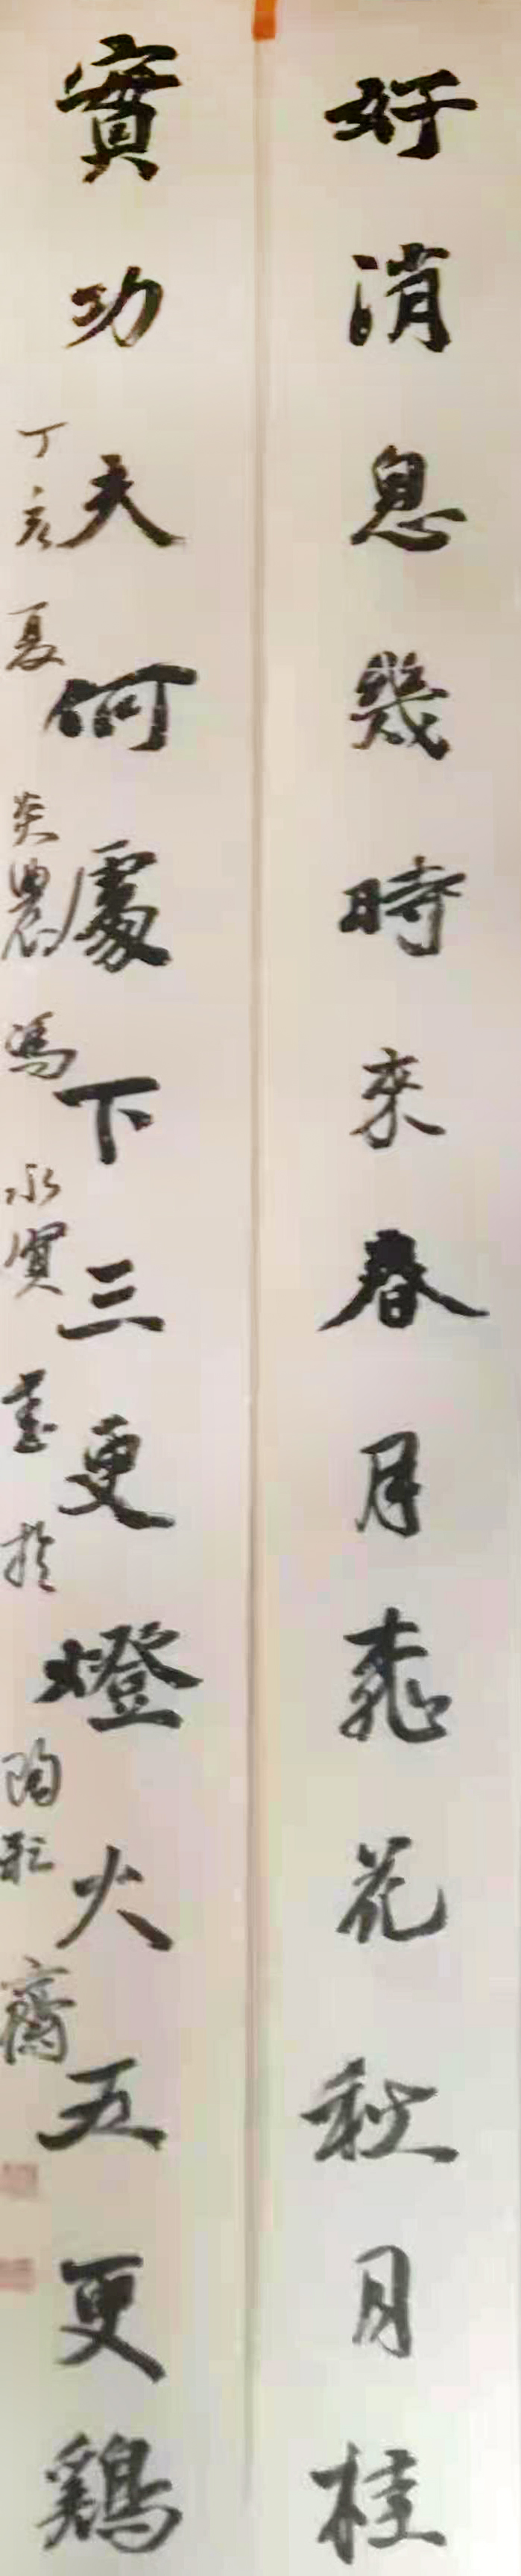 好消息幾時來春月桃花秋月桂
實功夫何處下三更燈火五更鷄
丁亥夏炎農馮永實書於陶彩齋